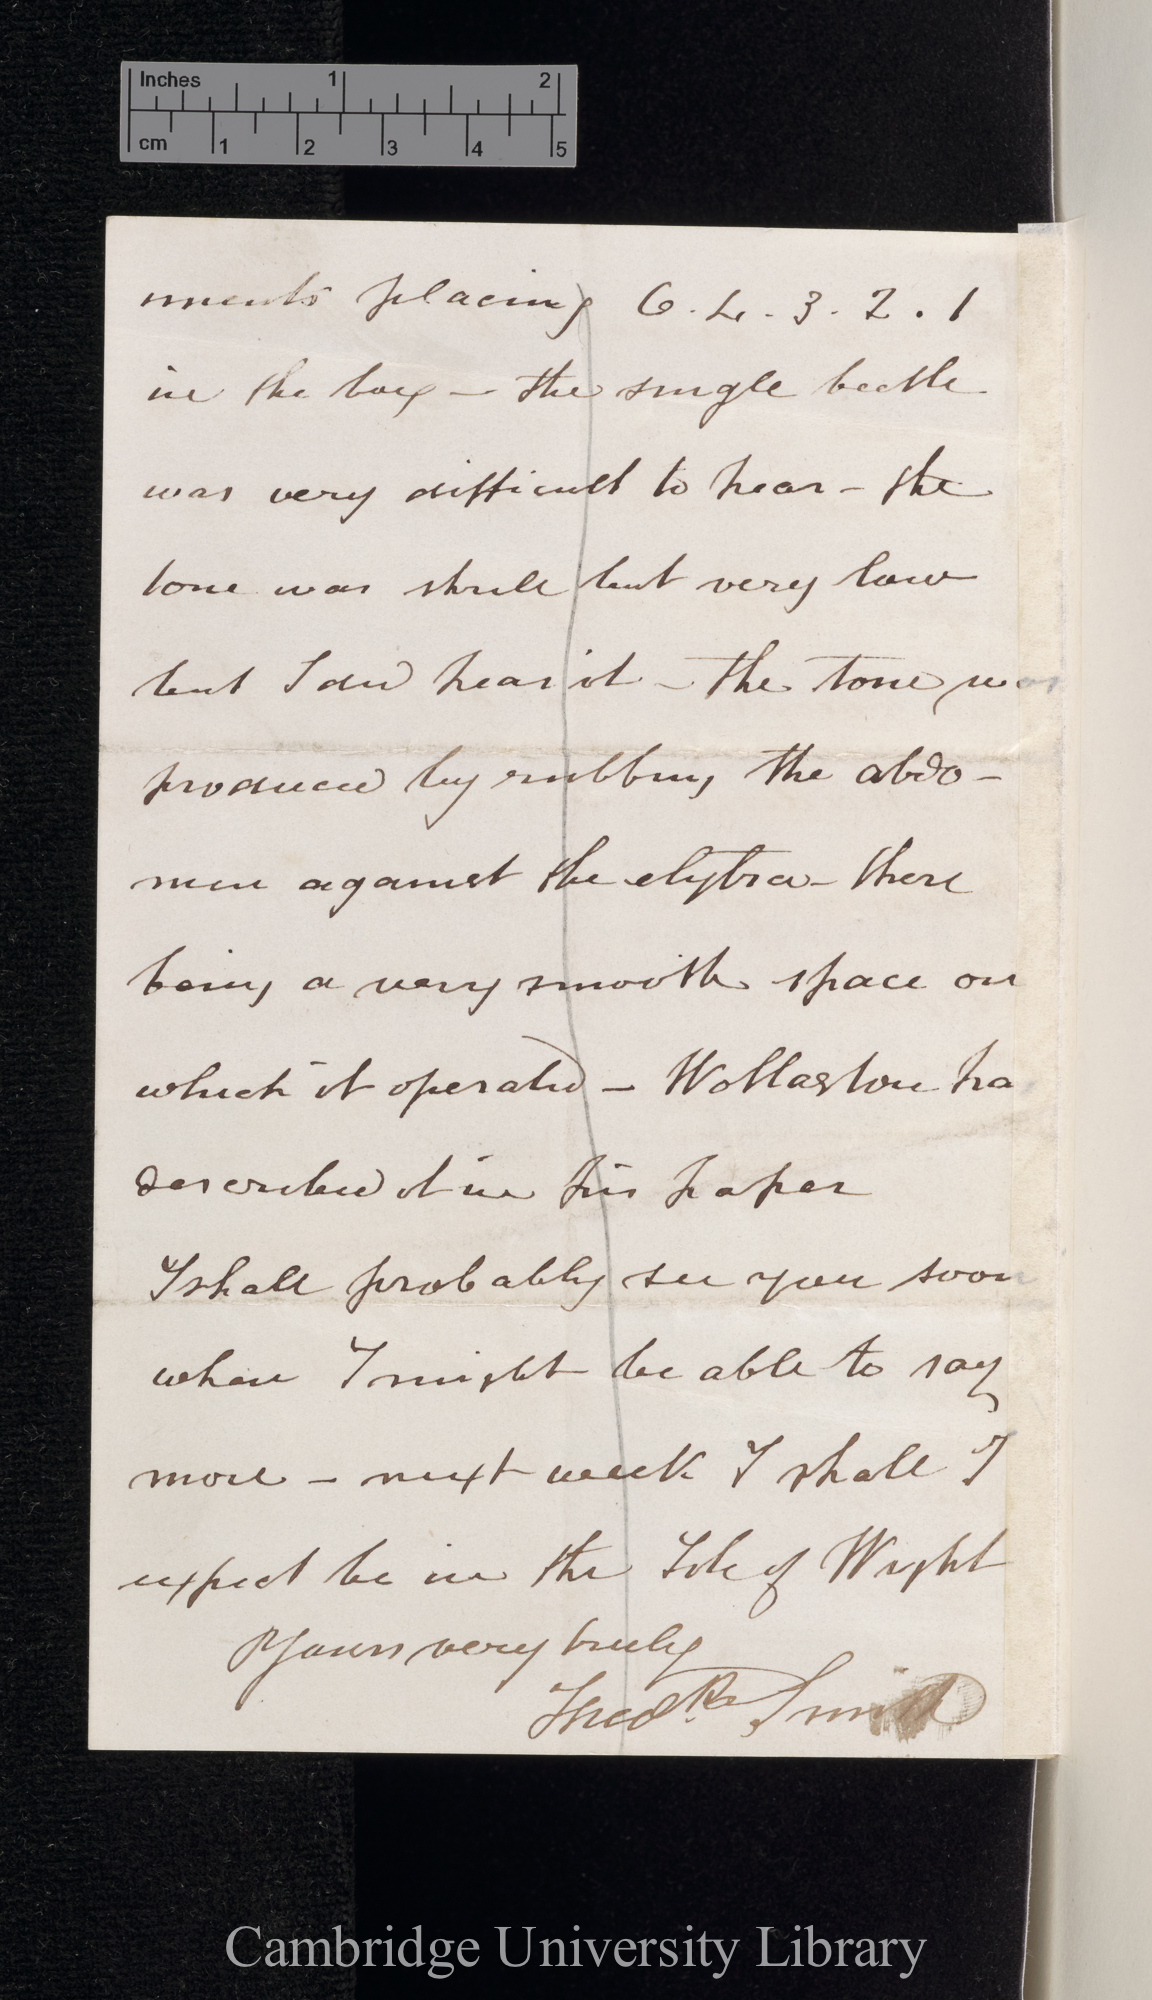 Inches 1 2
cm 1 2 3 4 5
ments placing 6. 4. 3. 2. 1
in the box — the single beetle
was very difficult to hear — the
tone was shrill but very low
but I did hear it — the tone was
produced by rubbing the abdo-
men against the elytra — there
being a very smooth space on
which it operated — Wollaston ha
described it in his paper
I shall probably see you soon
when I might be able to say
more — next week I shall I
expect be in the Isle of Wight
Yours very truly
Fredk. Smith
Cambridge University Library